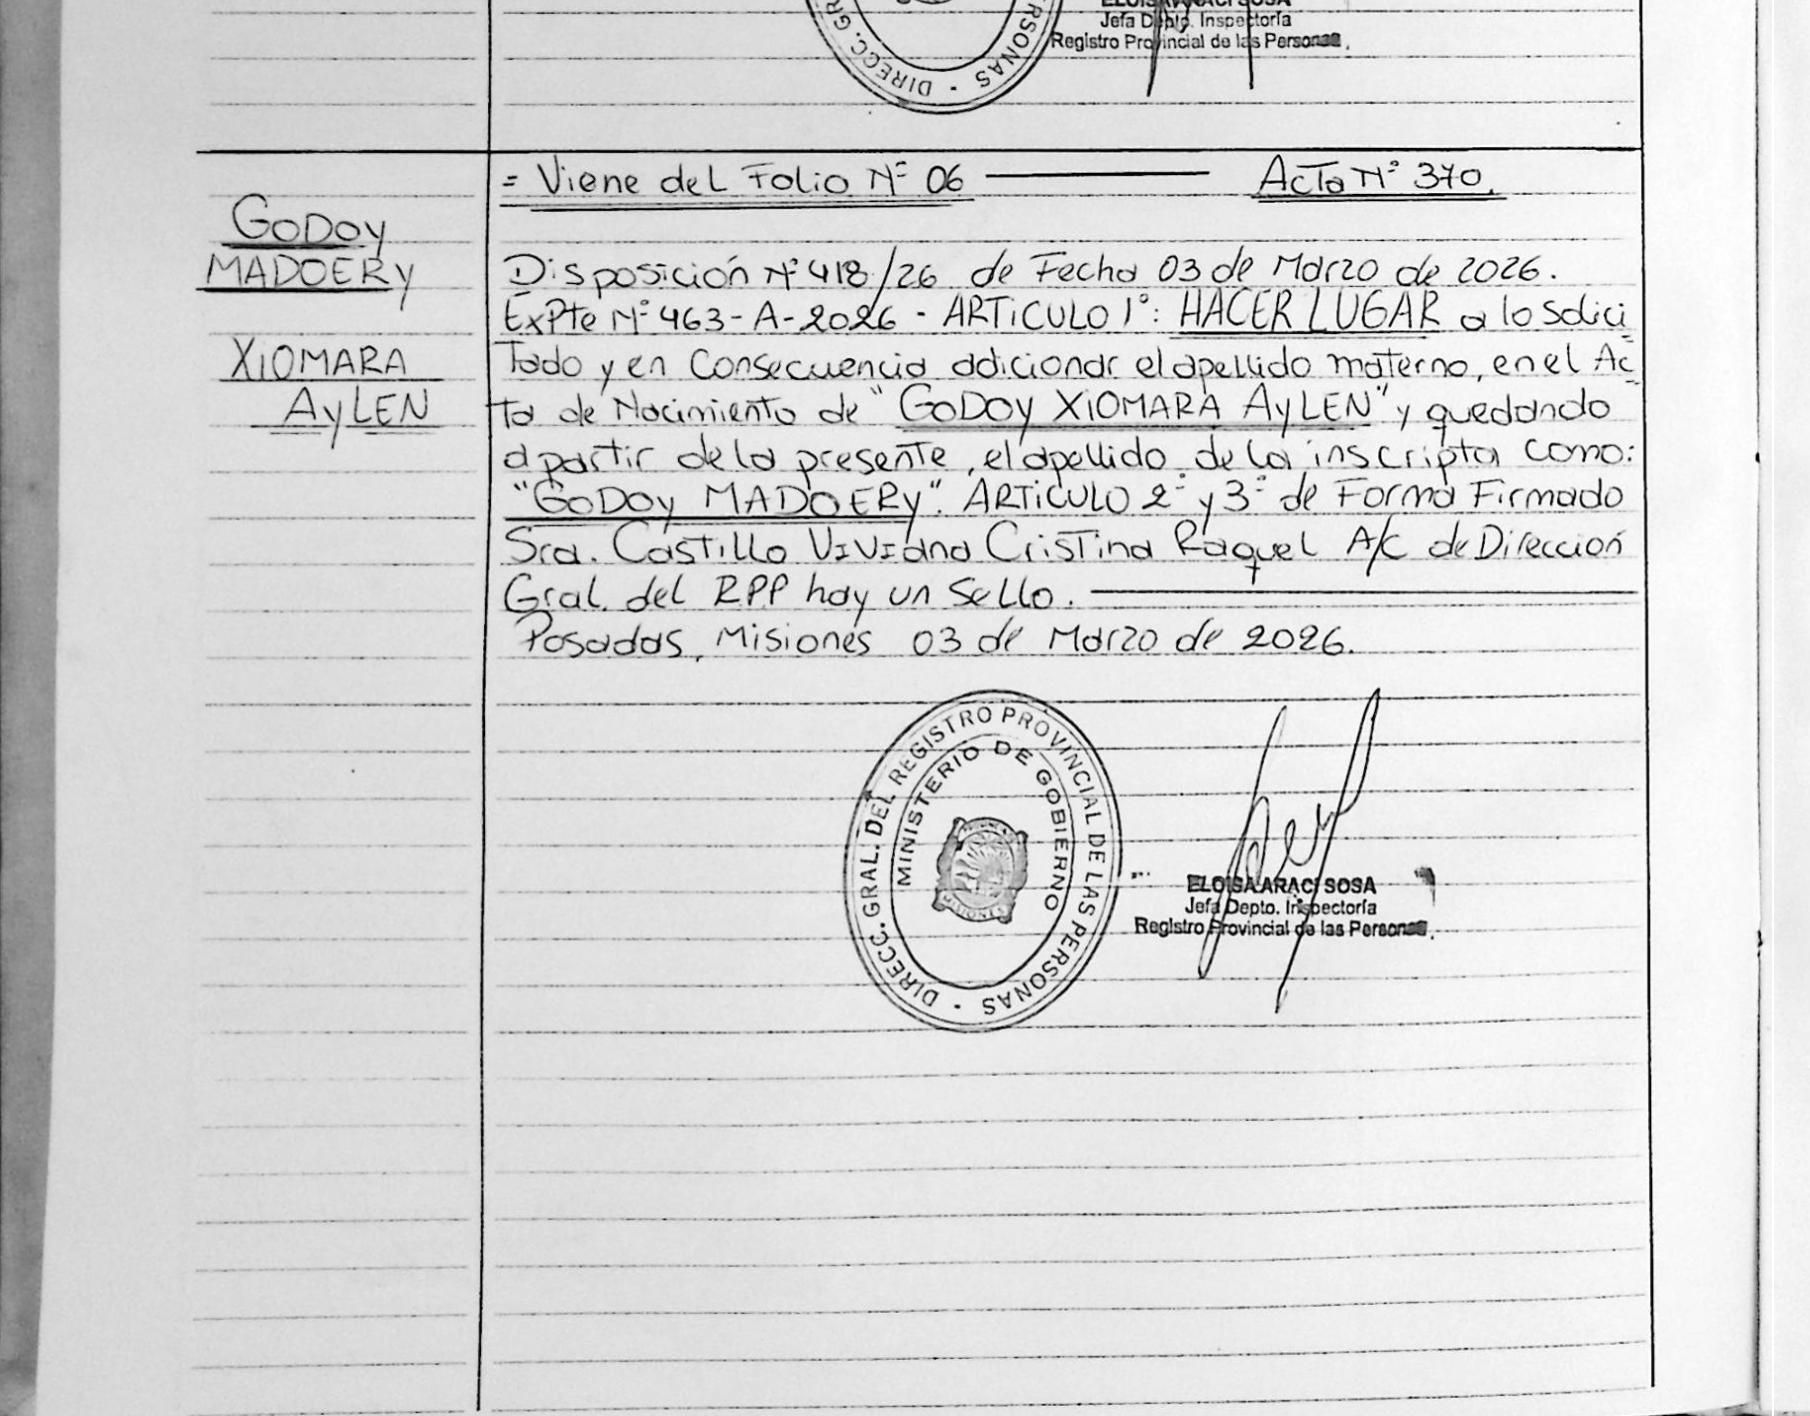 ELOISA ARACI SOSA
Jefa Depto. Inspectoría
Registro Provincial de las Personas.
DIRECC. GR
RSONAS
= Viene del Folio N° 06 ——— Acta N° 370.
GODOY
MADOERY
XIOMARA
AYLEN
Disposición N° 418/26 de Fecha 03 de Marzo de 2026.
ExPte N° 463-A-2026 - ARTICULO 1°: HACER LUGAR a lo solici
tado y en Consecuencia adicionar el apellido materno, en el Ac
ta de Nacimiento de "GODOY XIOMARA AYLEN" y quedando
a partir de la presente, el apellido de la inscripta como:
"GODOY MADOERY". ARTICULO 2° y 3° de Forma Firmado
Sra. Castillo Viviana Cristina Raquel A/C de Dirección
Gral. del RPP hay un Sello.
Posadas, Misiones 03 de Marzo de 2026.
DIRECC. GRAL. DEL REGISTRO PROVINCIAL DE LAS PERSONAS -
MINISTERIO DE GOBIERNO
MISIONES
ELOISA ARACI SOSA
Jefa Depto. Inspectoría
Registro Provincial de las Personas.